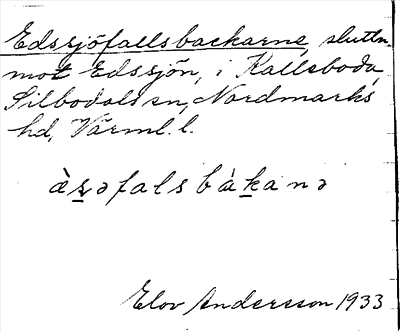 Edssjöfallsbackarne, sluttn.
mot Edssjön, i Kallsboda,
Silbodals sn, Nordmarks
hd, Värml. l.
àṣəfalsbàkanə
Elov Andersson 1933